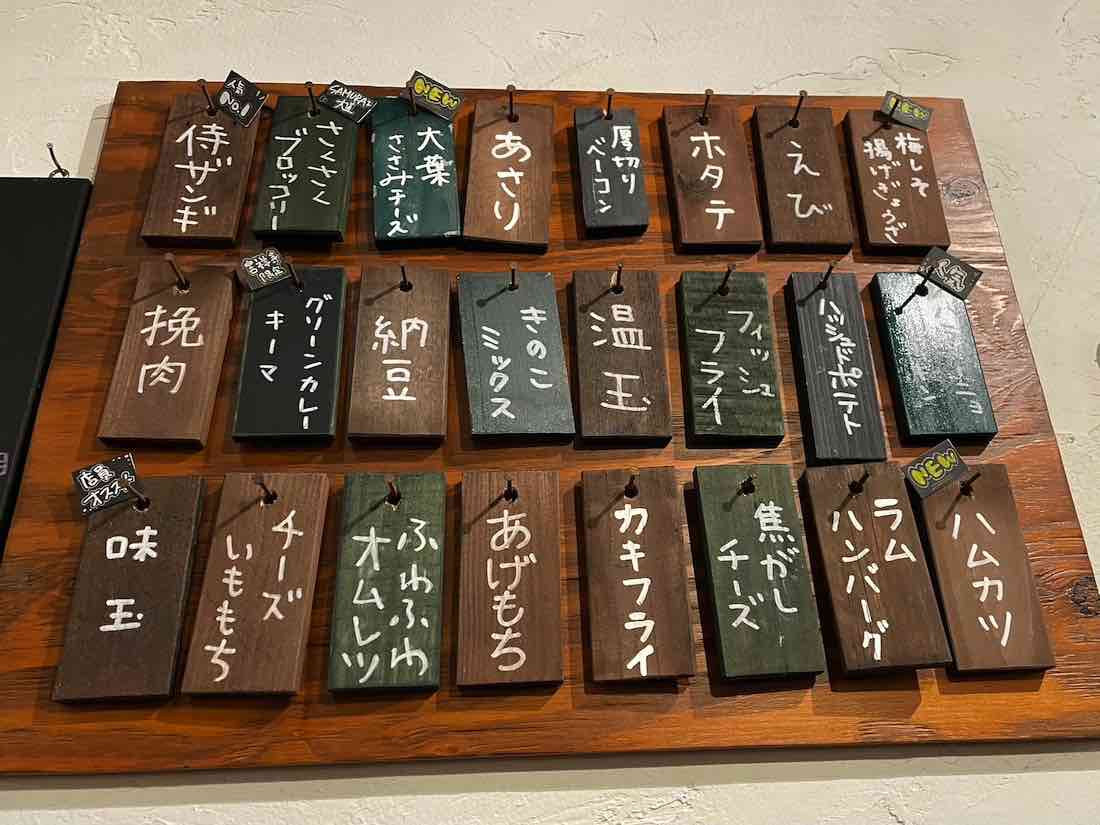 人気
No.1
侍ザンギ
SAMURAI
さくさく
ブロッコリー
NEW
大葉
ささみチーズ
あさり
厚切り
ベーコン
ホタテ
えび
NEW
梅しそ
揚げぎょうざ
挽肉
限定
グリーンカレー
キーマ
納豆
きのこ
ミックス
温玉
フィッシュ
フライ
ハッシュドポテト
人気
店員
オススメ
味玉
チーズ
いももち
ふわふわ
オムレツ
あげもち
カキフライ
焦がし
チーズ
ラム
ハンバーグ
NEW
ハムカツ